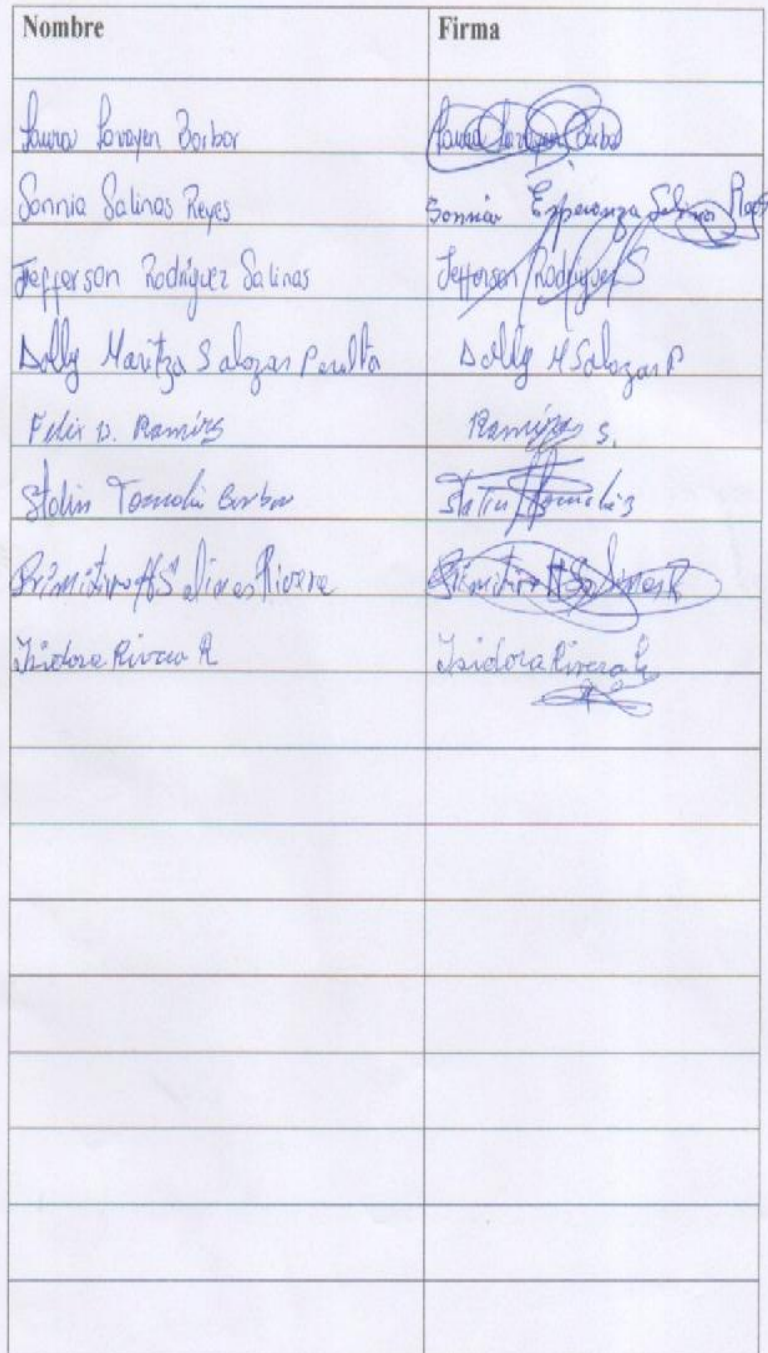 Nombre Firma
Laura Lavayen Borbor Laura Lavayen Borbor
Sonnia Salinas Reyes Sonnia Esperanza Salinas Reyes
Jefferson Rodriguez Salinas Jefferson Rodriguez S
Dolly Maritza Salazar Peralta Dolly M Salazar P
Felix D. Ramirez Ramirez S.
Stalin Borbor Stalin
Primitivo H Salinas Rivera Primitivo H Salinas R
Isidora Rivera R Isidora Rivera R